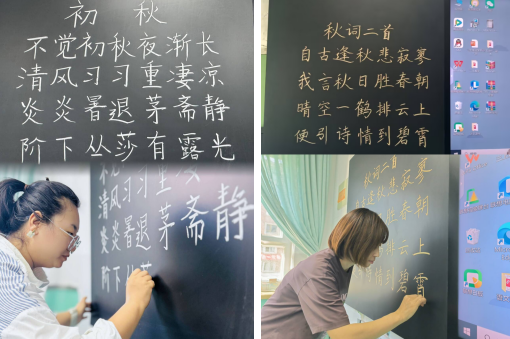 初秋
不觉初秋夜渐长
清风习习重凄凉
炎炎暑退茅斋静
阶下丛莎有露光
秋词二首
自古逢秋悲寂寥
我言秋日胜春朝
晴空一鹤排云上
便引诗情到碧霄
初
清风习习重
炎炎暑退茅斋静
阶下丛莎
秋词二首
逢秋悲寂寥
胜春朝
云上
情到碧霄